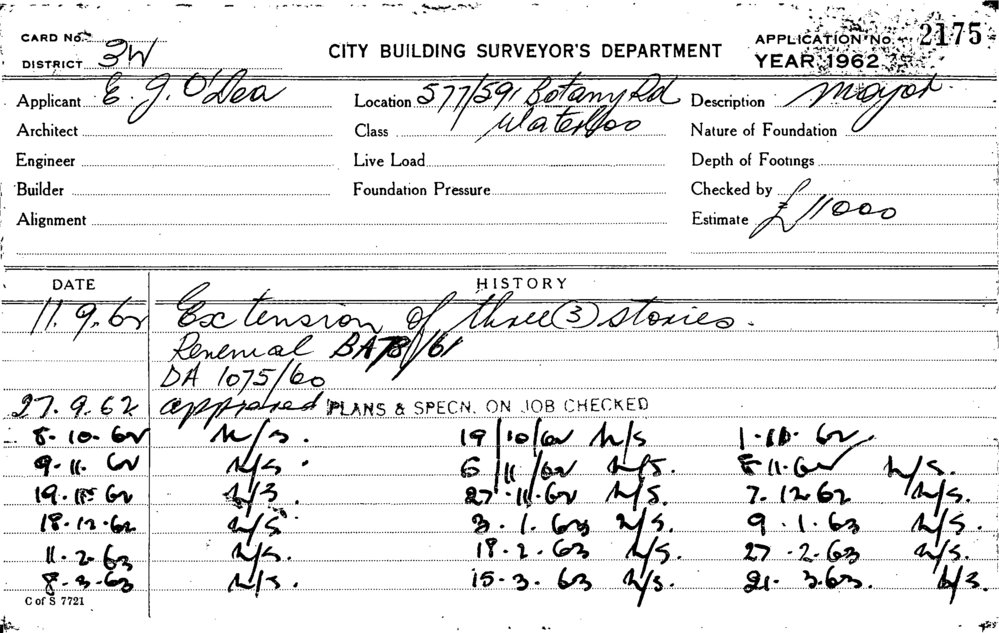 CARD No.
DISTRICT 3W
CITY BUILDING SURVEYOR'S DEPARTMENT
APPLICATION No. 2175
YEAR 1962
Applicant E. J. O'Dea
Location 577/591 Botany Rd Waterloo
Description Major
Architect
Class
Nature of Foundation
Engineer
Live Load
Depth of Footings
Builder
Foundation Pressure
Checked by
Alignment
Estimate £11000
DATE HISTORY
11.9.62 Extension of three (3) stories.
Renewal BA /61
DA 1075/60
27.9.62 approved PLANS & SPECN. ON JOB CHECKED
8-10-62 N/S. 19/10/62 N/S 62
9-11-62 N/S. 6/11/62 N/S. 8 11.62 N/S.
19.11.62 N/S. 27.11.62 N/S. 7.12.62 N/S.
18.12.62 N/S 3.1.63 N/S 9.1.63 N/S.
11.2.63 N/S. 18.2.63 N/S. 27.2.63 N/S.
8.3.63 N/S. 15.3.63 N/S. 21.3.63. N/S.
C of S 7721